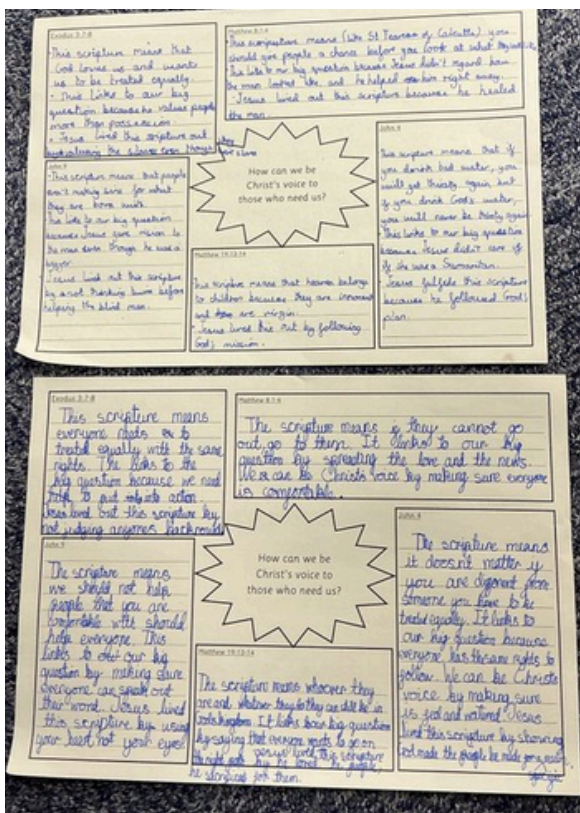 Exodus 3:7-8
This scripture means that
God loves us and wants
us to be treated equally.
This links to our big
question because he values people
more than possession.
Jesus lived this scripture out
by valuing the slaves even though they
were slaves
Matthew 8:1-4
This scripture means (like St Teresa of Calcutta) you
should give people a chance before you look at what
This links to our big question because Jesus didn't regard how
the man looked like and he helped him right away.
Jesus lived out this scripture because he healed
the man.
John 9
This scripture means that people
aren't making sins for what
they are born with.
This links to our big question
because Jesus gave vision to
the man even though he was a
beggar.
Jesus lived out this scripture
by not thinking before
helping the blind man.
How can we be
Christ's voice to
those who need us?
Matthew 19:13-14
This scripture means that heaven belongs
to children because they are innocent
and are virgin.
Jesus lived this out by following
God's mission.
John 4
This scripture means that if
you drink bad water, you
will get thirsty again, but
if you drink God's water,
you will never be thirsty again
This links to our big question
because Jesus didn't care if
she was a Samaritan.
Jesus this scripture
because he followed God's
plan.
Exodus 3:7-8
This scripture means
everyone needs to
treated equally with the same
rights. The links to the
big question because we need
to put into action
Jesus lived out this scripture by
not judging anyones background
Matthew 8:1-4
The scripture means if they cannot go
out, go to them. It links to our big
question by spreading the love and the news.
We can be Christs voice by making sure everyone
is comfortable.
John 9
The scripture means
we should not help
people that you are
comfortable with should
help everyone. This
links to our big
question by making sure
everyone can speak out
their word. Jesus lived
this scripture by using
your heart not your eyes!
How can we be
Christ's voice to
those who need us?
Matthew 19:13-14
The scripture means whoever they
are and whatever they do they are able be in
Gods kingdom. It links to our big question
by saying that everyone wants to go on
the right path. Jesus lived this scripture
by he loved the people,
he sacrificed for them.
John 4
The scripture means
it doesn't matter if
you are different from
someone you have to be
treated equally. It links to
our big question because
everyone has the same rights to
follow. We can be Christs
voice by making sure
is fed and watered. Jesus
lived this scripture by showing
God made the people he made for a reason.